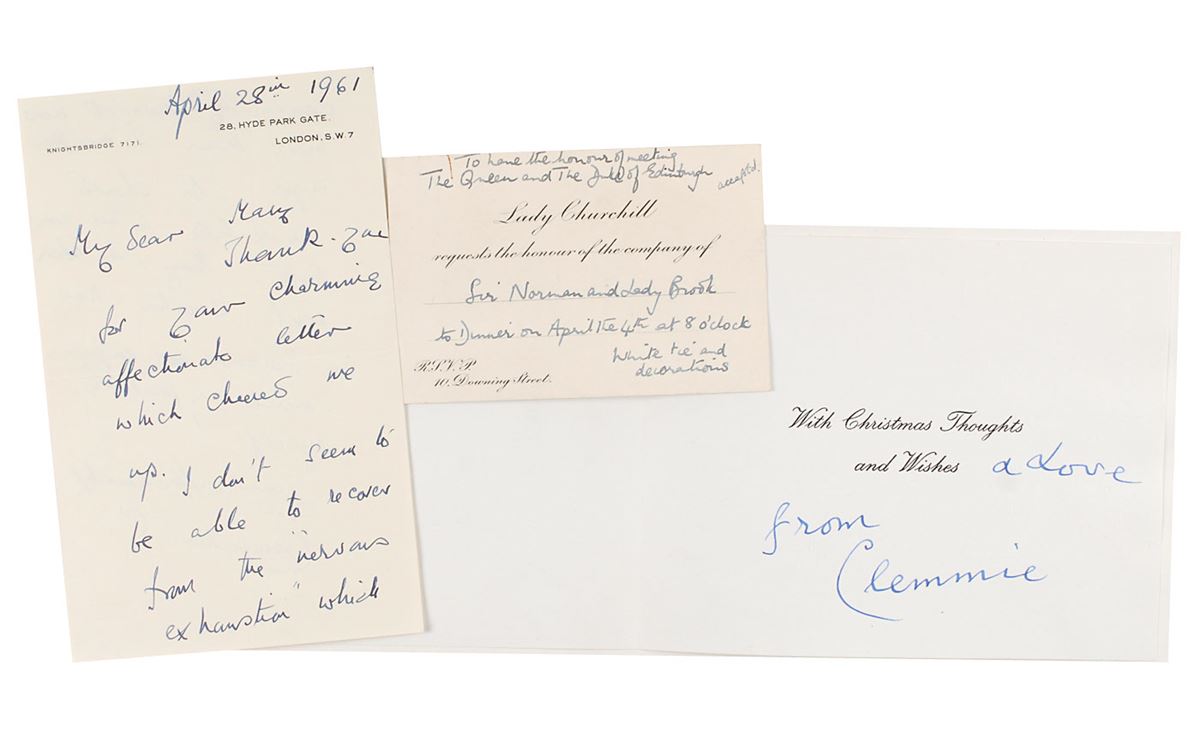 April 28th 1961
KNIGHTSBRIDGE 7171.
28, HYDE PARK GATE.
LONDON. S.W.7
My dear Mary
Thank-you
for your charming
affectionate letter
which cheered me
up. I don't seem to
be able to recover
from the "nervous
exhaustion" which
To have the honour of meeting
The Queen and The Duke of Edinburgh
accepted.
Lady Churchill
requests the honour of the company of
Sir Norman and Lady Brook
to Dinner on April the 4th at 8 o'clock
White tie and
decorations
R.S.V.P
10, Downing Street.
With Christmas Thoughts
and Wishes & Love
from
Clemmie